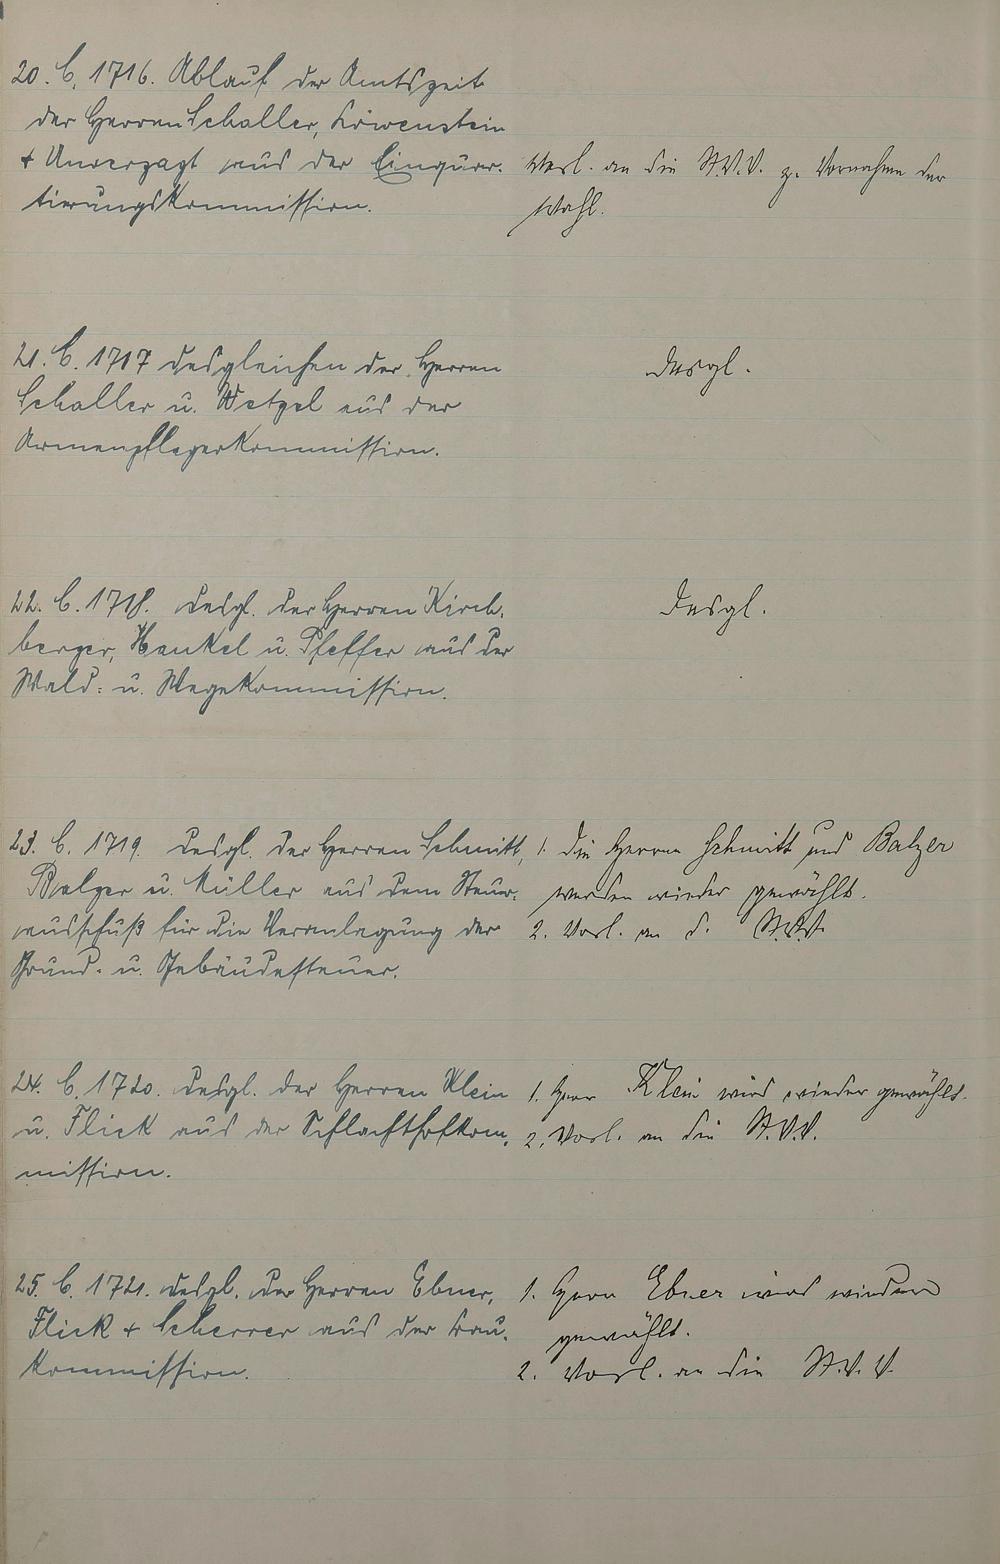 20. C. 1716. Ablauf der Amtszeit
der Herren Schaller, Löwenstein
+ Unverzagt aus der Einquar-
tierungskommission.
Vorl. an die St.V.V. z. Vornahme der
Wahl.
21. C. 1717 desgleichen der Herren
Schaller u. Wetzel aus der
Armenpflegerkommission.
desgl.
22. C. 1718. desgl. der Herren Kirch-
berger, Henkel u. Pfeffer aus der
Wald- u. Wegekommission.
desgl.
23. C. 1719. desgl. der Herren Schmitt,
Balzer u. Müller aus dem Steuer-
ausschuß für die Veranlagung der
Grund- u. Gebäudesteuer.
1. die Herren Schmitt und Balzer
werden wieder gewählt.
2. Vorl. an d. St.V.V.
24. C. 1720. desgl. der Herren Klein
u. Flick aus der Schlachthofkom-
mission.
1. Herr Klein wird wieder gewählt.
2. Vorl. an die St.V.V.
25. C. 1721. desgl. der Herren Ebner,
Flick + Scherrer aus der Bau-
kommission.
1. Herr Ebner wird wieder
gewählt.
2. Vorl. an die St.V.V.